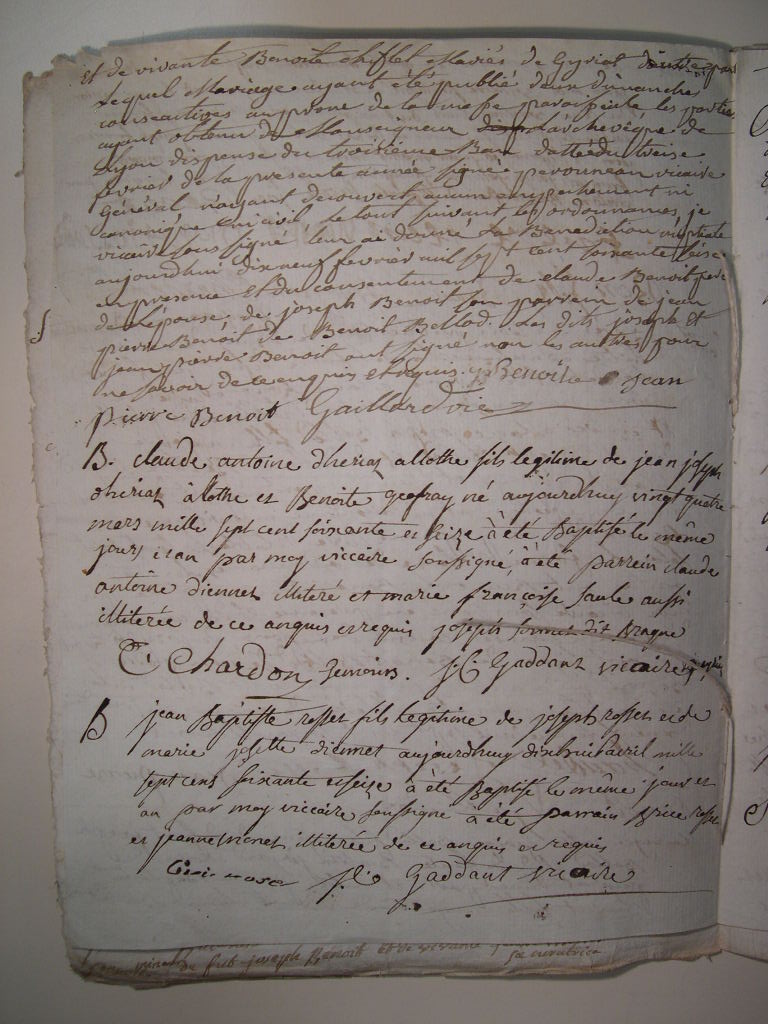 et de vivante Benoite chifflet Mariés de Gyriat d'autre part
Lequel Mariage ayant été publié deux dimanche
consecutives au prone de la messe paroissiale les parties
ayant obtenu de Monseigneur L'archevêque de
Lyon dispense du troisième Ban dattée du treise
fevrier de la presente année signée vicaire
Général n'ayant decouvert aucun empechement ni
canonique ni civil le tout suivant les ordonnances, je
vicaire sous signé leur ai donné La Benediction nuptiale
aujourdhui dixneuf fevrier mil sept cent soixante seise
en presence et du consentement de claude Benoit pere
de L'epouse de joseph Benoit son parrein de jean
pierre Benoit de Benoit Bellod. Les dits joseph et
jean pierre Benoit ont signé non les autres pour
ne savoir de ce enquis et requis. j Benoit jean
Pierre Benoit Gaillard vic
B. claude antoine dheriaz allothe fils legitime de jean joseph
dheriaz àlothe et Benoite geofray né aujourdhuy vingt quatre
mars mille sept cent soixante et seize à été Baptisé le même
jours et an par moy viccaire soussigné, à été parrein claude
antoine diennet illiteré et marie françoise saule aussi
illiterée de ce anquis et requis joseph dit
C. Chardon temoins. Gaddant viccaire
B jean Baptiste rosset fils legitime de joseph rosset et de
marie josette diennet aujourdhuy dixhuit avril mille
sept cens soixante et seize à été Baptisé le même jour et
an par moy viccaire soussigne à été parrain brice rosset
et jeanne monet illiterée de ce anquis et requis
Gaddant vicaire
de fut joseph Benoit et de vivante
sa curatrice